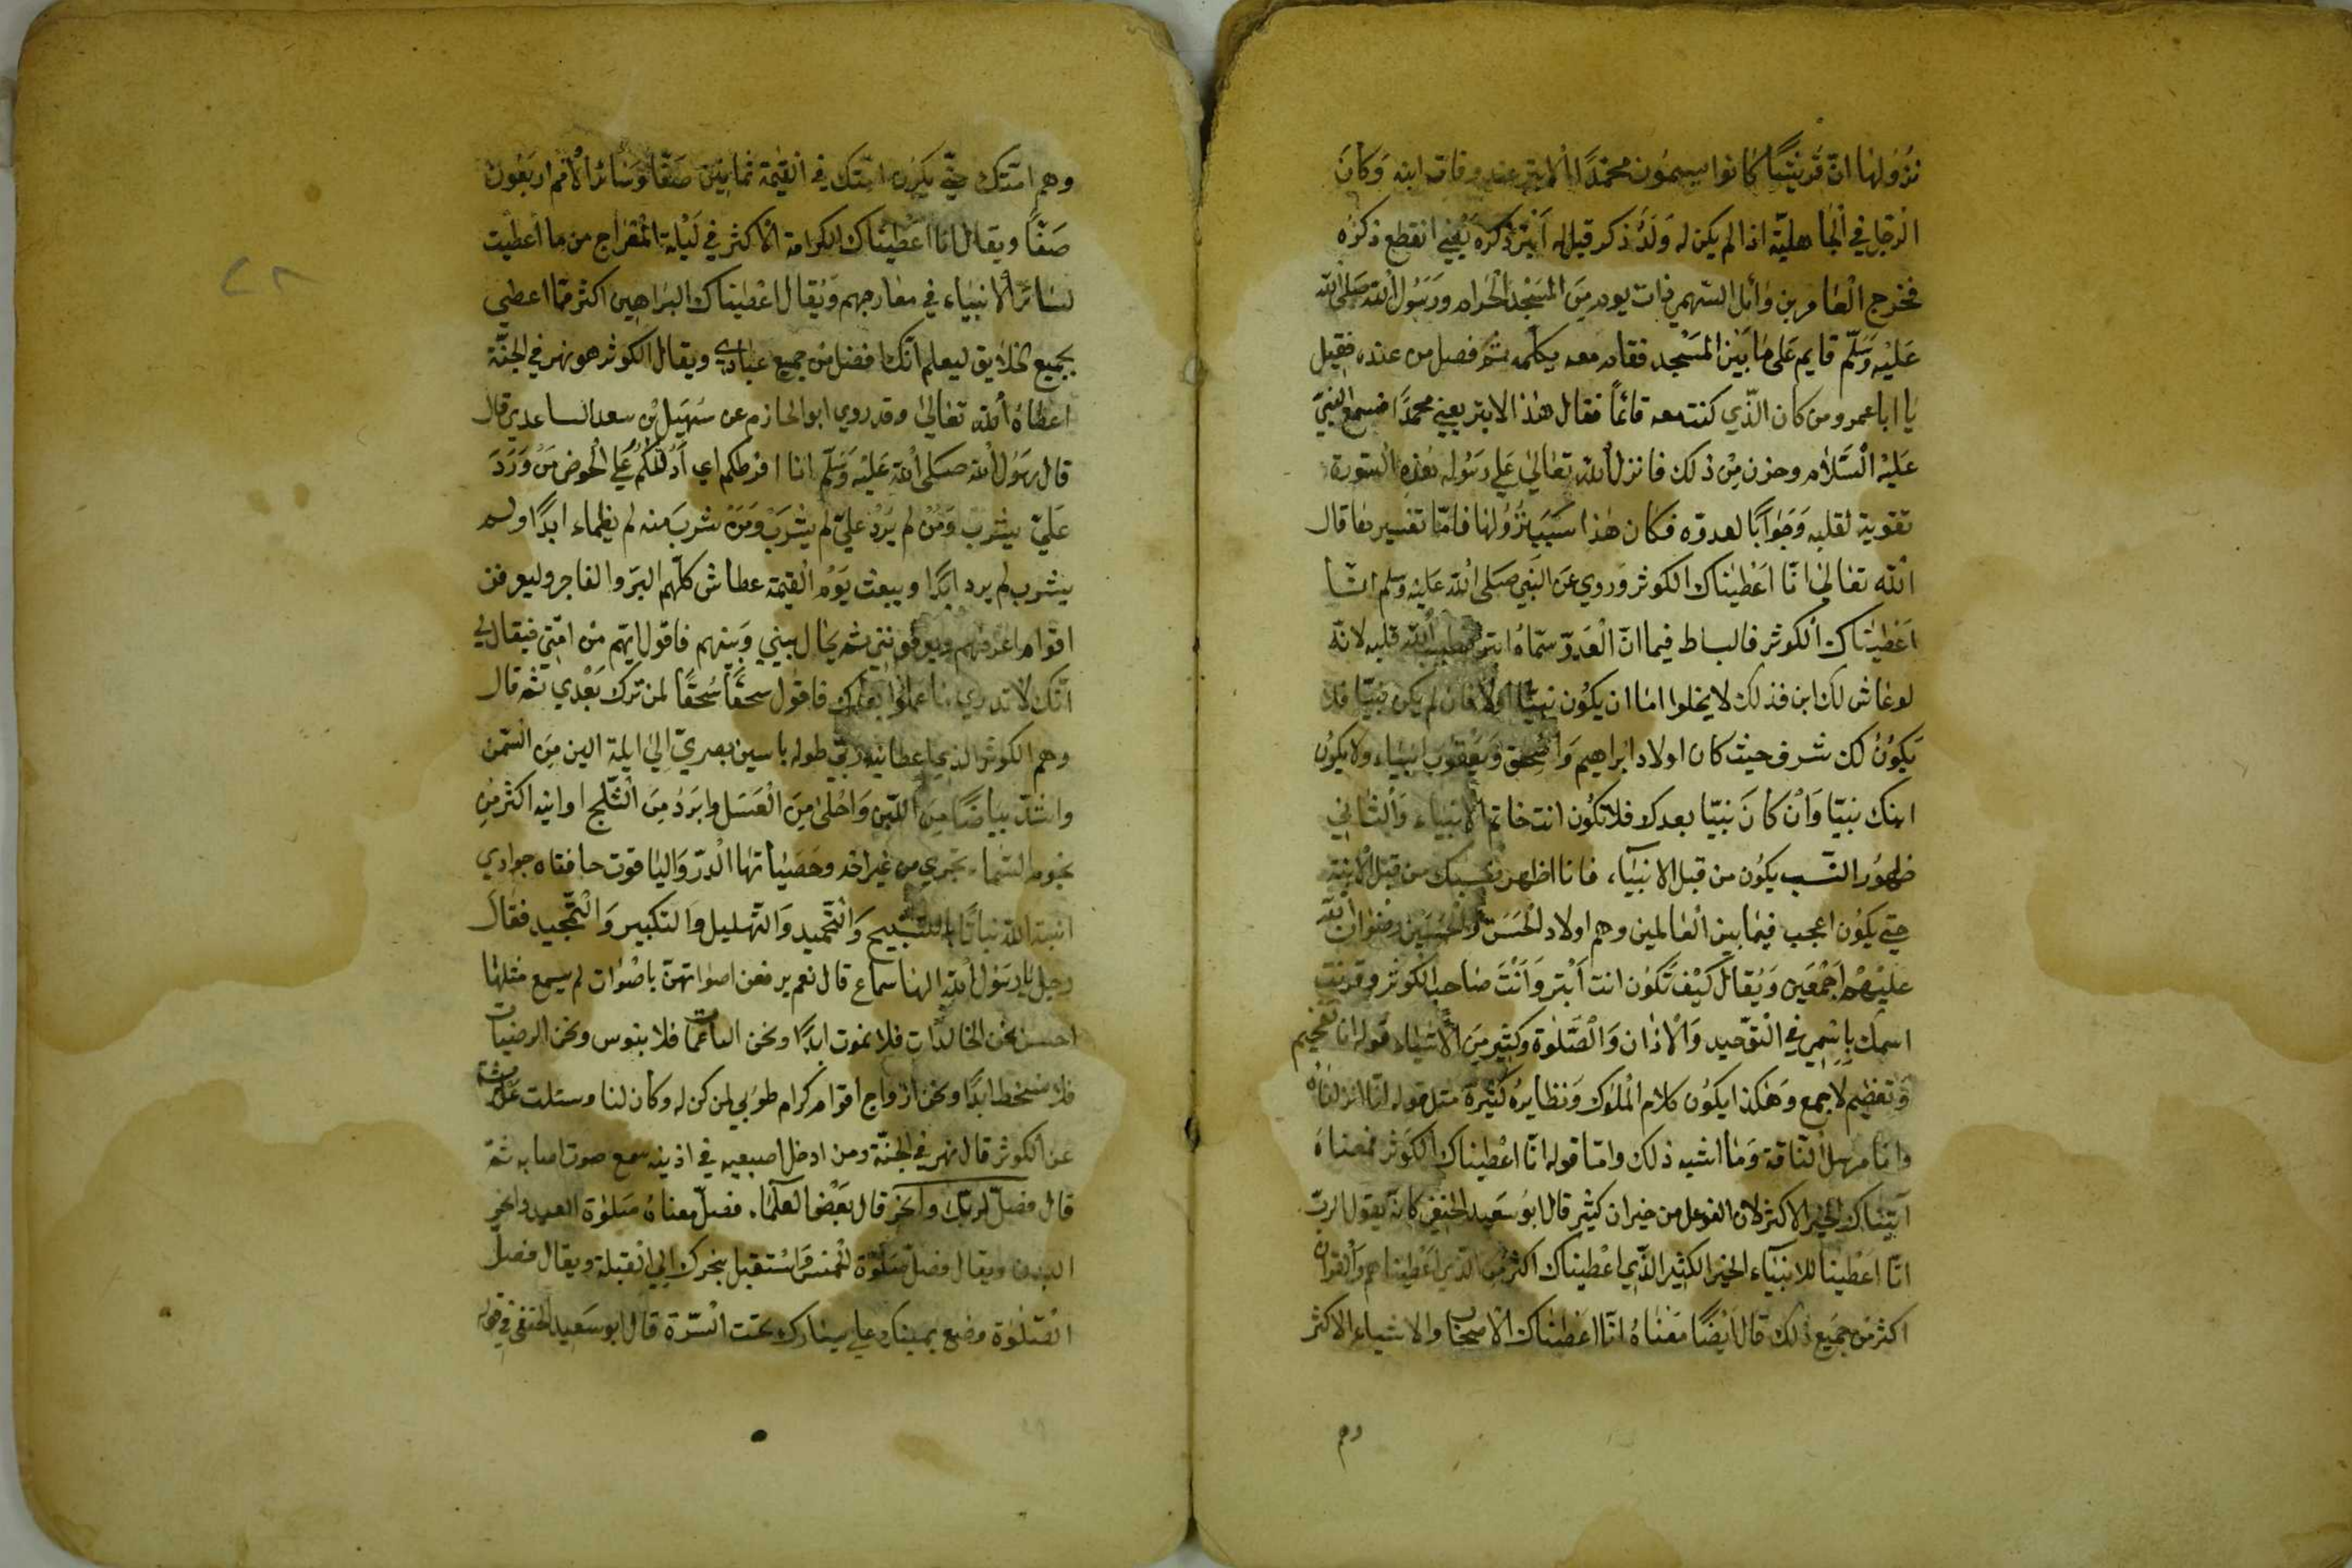 نزولها ان قريشا كانوا يسمون محمدا الابتر عند وفات ابنه وكان
الرجل في الجاهلية اذا لم يكن له ولد ذكر قيل له ابتر ذكره يعني انقطع ذكره
فخرج العاص بن وائل السهمي ذات يوم من المسجد الحرام ورسول الله صلى الله
عليه وسلم قايم على ما بين المسجد فقام معه يكلمه ثم فصل من عنده فقيل
يا ابا عمرو من كان الذي كنت معه قائما فقال هذا الابتر يعني محمدا فسمع النبي
عليه السلام وحزن من ذلك فانزل الله تعالى على رسوله هذه السورة
تقوية لقلبه وجوابا لعدوه فكان هذا سبب نزولها فاما تفسيرها قال
الله تعالى انا اعطيناك الكوثر وروي عن النبي صلى الله عليه وسلم انا
اعطيناك الكوثر فالبساط فيما ان العدو سماه ابتر الله قلبه لانه
لو عاش لك ابن فذلك لا يخلوا اما ان يكون نبيا اولا فان لم يكن نبيا فلا
يكون لك شرف حيث كان اولاد ابراهيم واسحق ويعقوب انبياء ولا يكون
ابنك نبيا وان كان نبيا بعدك فلا تكون انت خاتم الانبياء والثاني
ظهور النسب يكون من قبل الانبياء، فانا اظهر نسبك من قبل الابنة
حتى يكون اعجب فيما بين العالمين وهم اولاد الحسن والحسين رضوان الله
عليهم اجمعين ويقال كيف تكون انت ابتر وانت صاحب الكوثر وقرنت
اسمك باسمي في التوحيد والاذان والصلوة وكثير من الاشياء قوله انا تفخيم
وتعظيم لا جمع وهكذا يكون كلام الملوك ونظايره كثيرة مثل قوله انا انزلناه
وانا مرسل الناقة وما اشبه ذلك واما قوله انا اعطيناك الكوثر فمعناه
آتيناك الخير الاكثر لان الفوعل من خيران كثير قال ابو سعيد الحنفي كانه يقول الرب
انا اعطينا للانبياء الخير الكثير الذي اعطيناك اكثر من الذي اعطيناهم والقران
اكثر من جميع ذلك قال ايضا معناه انا اعطيناك الاصحاب والاشياء الاكثر
وهم
وهم امتك حتى يكون امتك في القيمة ثمانين صفا وسائر الامم اربعون
صفا ويقال انا اعطيناك الكرامة الاكثر في ليلة المعراج من ما اعطيت
لسائر الانبياء في معارجهم ويقال اعطيناك البراهين اكثر مما اعطي
بجميع الخلايق ليعلم انك افضل من جميع عبادي ويقال الكوثر هو نهر في الجنة
اعطاه الله تعالى وقد روي ابو الحازم عن سهيل بن سعد الساعدي قال
قال رسول الله صلى الله عليه وسلم انا افرطكم اي ادلكم على الحوض من ورد
علي يشرب ومن لم يرد علي لم يشرب ومن شرب منه لم يظماء ابدا ولم
يشرب لم يرد ابدا ويبعث يوم القيمة عطاش كلهم البر والفاجر وليعرفن
اقوام اعرفهم ويعرفونني ثم يحال بيني وبينهم فاقول انهم من امتي فيقال لي
انك لا تدري ما عملوا بعدك فاقول سحقا سحقا لمن ترك بعدي ثم قال
وهم الكوثر الذي اعطانيه ربي طوله باسين بصري الي ايلة الين من السمن
واشد بياضا من اللبن واحلى من العسل وابرد من الثلج اوانيه اكثر من
نجوم السماء تجري من غير اخد وحصياتها الدر والياقوت حافتاه جوادي
انبت الله نباتا بالتسبيح والتحميد والتهليل والتكبير والتمجيد فقال
رجل يا رسول الله الهنا سماع قال نعم يرفعن اصواتهن باصوات لم يسمع مثلها
احسن نحن الخالدات فلا نموت ابدا ونحن الناعمات فلا ننبوس ونحن الرضيات
فلا نسخط ابدا ونحن ازواج اقوام كرام طوبي لمن كن له وكان لنا وسئلت
عن الكوثر قال نهر في الجنة ومن ادخل اصبعيه في اذنيه سمع صوت
قال فصل لربك وانحر قال بعض العلماء فصل معناه صلوة العيد وانحر
البدن ويقال فصل صلوة الخمس واستقبل بنحرك الي القبلة ويقال فصل
الصلوة وضع يمينك علي يسارك تحت السرة قال ابو سعيد الحنفي في قوله